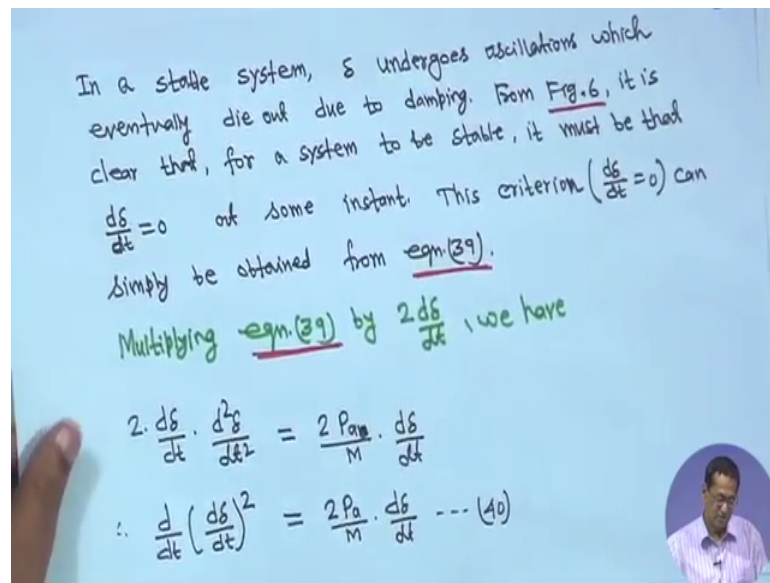 In a stable system, δ undergoes oscillations which
eventually die out due to damping. From Fig.6, it is
clear that, for a system to be stable, it must be that
dδ/dt = 0 at some instant. This criterion (dδ/dt = 0) can
simply be obtained from eqn.(39).
Multiplying eqn.(39) by 2dδ/dt, we have
2. dδ/dt . d²δ/dt² = 2Pa/M . dδ/dt
∴ d/dt (dδ/dt)² = 2Pa/M . dδ/dt --- (40)